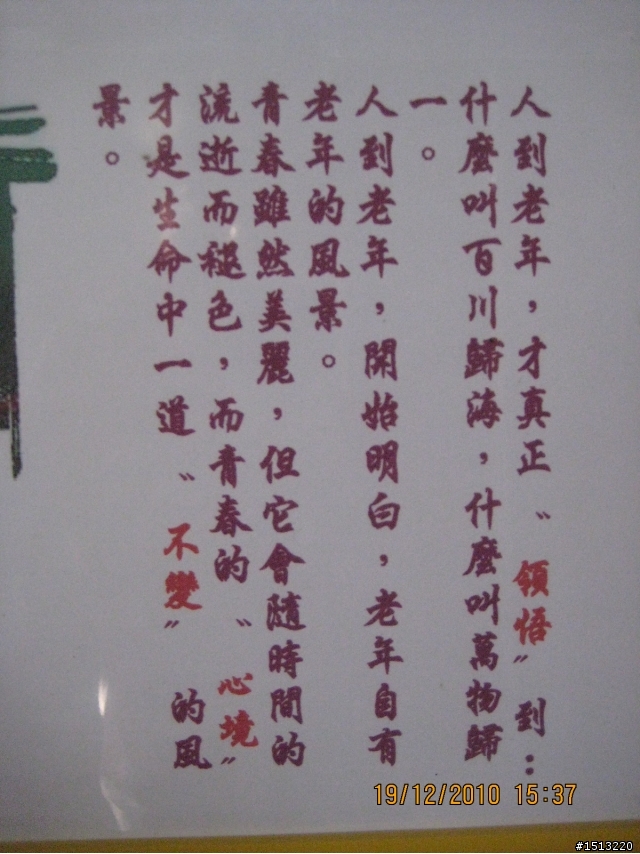 人到老年，才真正〝領悟〞到：
什麼叫百川歸海，什麼叫萬物歸
一。
人到老年，開始明白，老年自有
老年的風景。
青春雖然美麗，但它會隨時間的
流逝而褪色，而青春的〝心境〞
才是生命中一道〝不變〞的風
景。
19/12/2010 15:37
#1513220